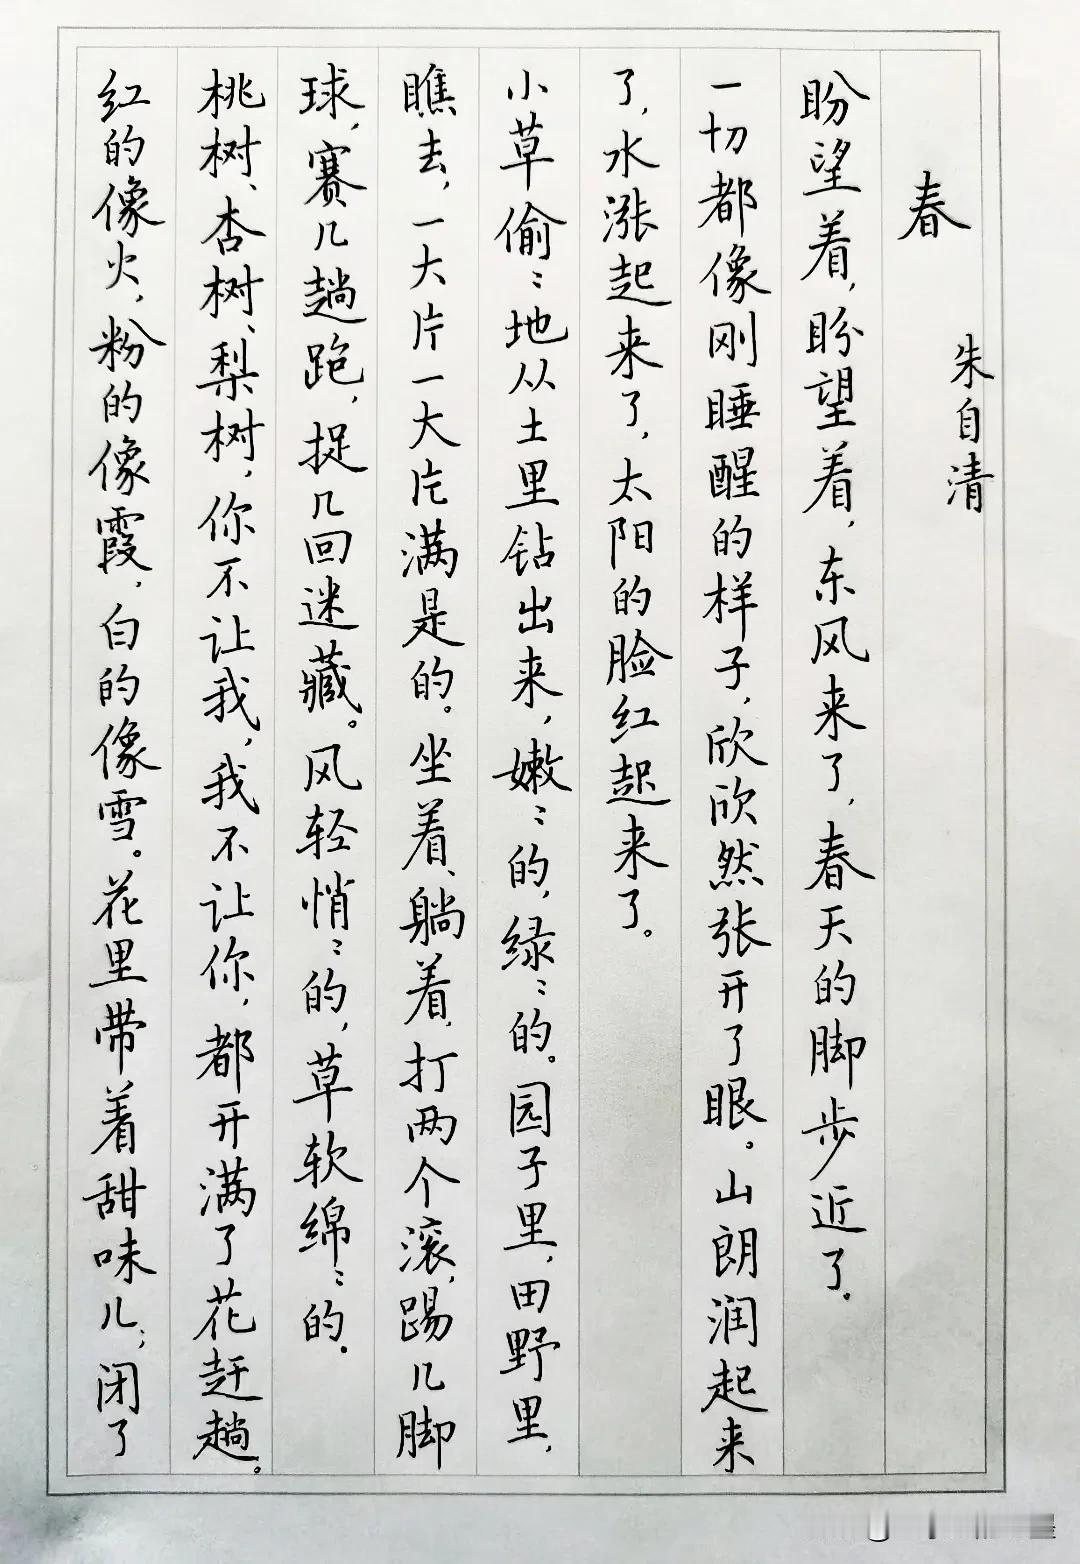 春
朱自清
盼望着，盼望着，东风来了，春天的脚步近了。
一切都像刚睡醒的样子，欣欣然张开了眼。山朗润起来
了，水涨起来了，太阳的脸红起来了。
小草偷：地从土里钻出来，嫩：的，绿：的。园子里，田野里，
瞧去，一大片一大片满是的。坐着、躺着，打两个滚，踢几脚
球，赛几趟跑，捉几回迷藏。风轻悄：的，草软绵：的。
桃树、杏树、梨树，你不让我，我不让你，都开满了花赶趟。
红的像火，粉的像霞，白的像雪。花里带着甜味儿；闭了